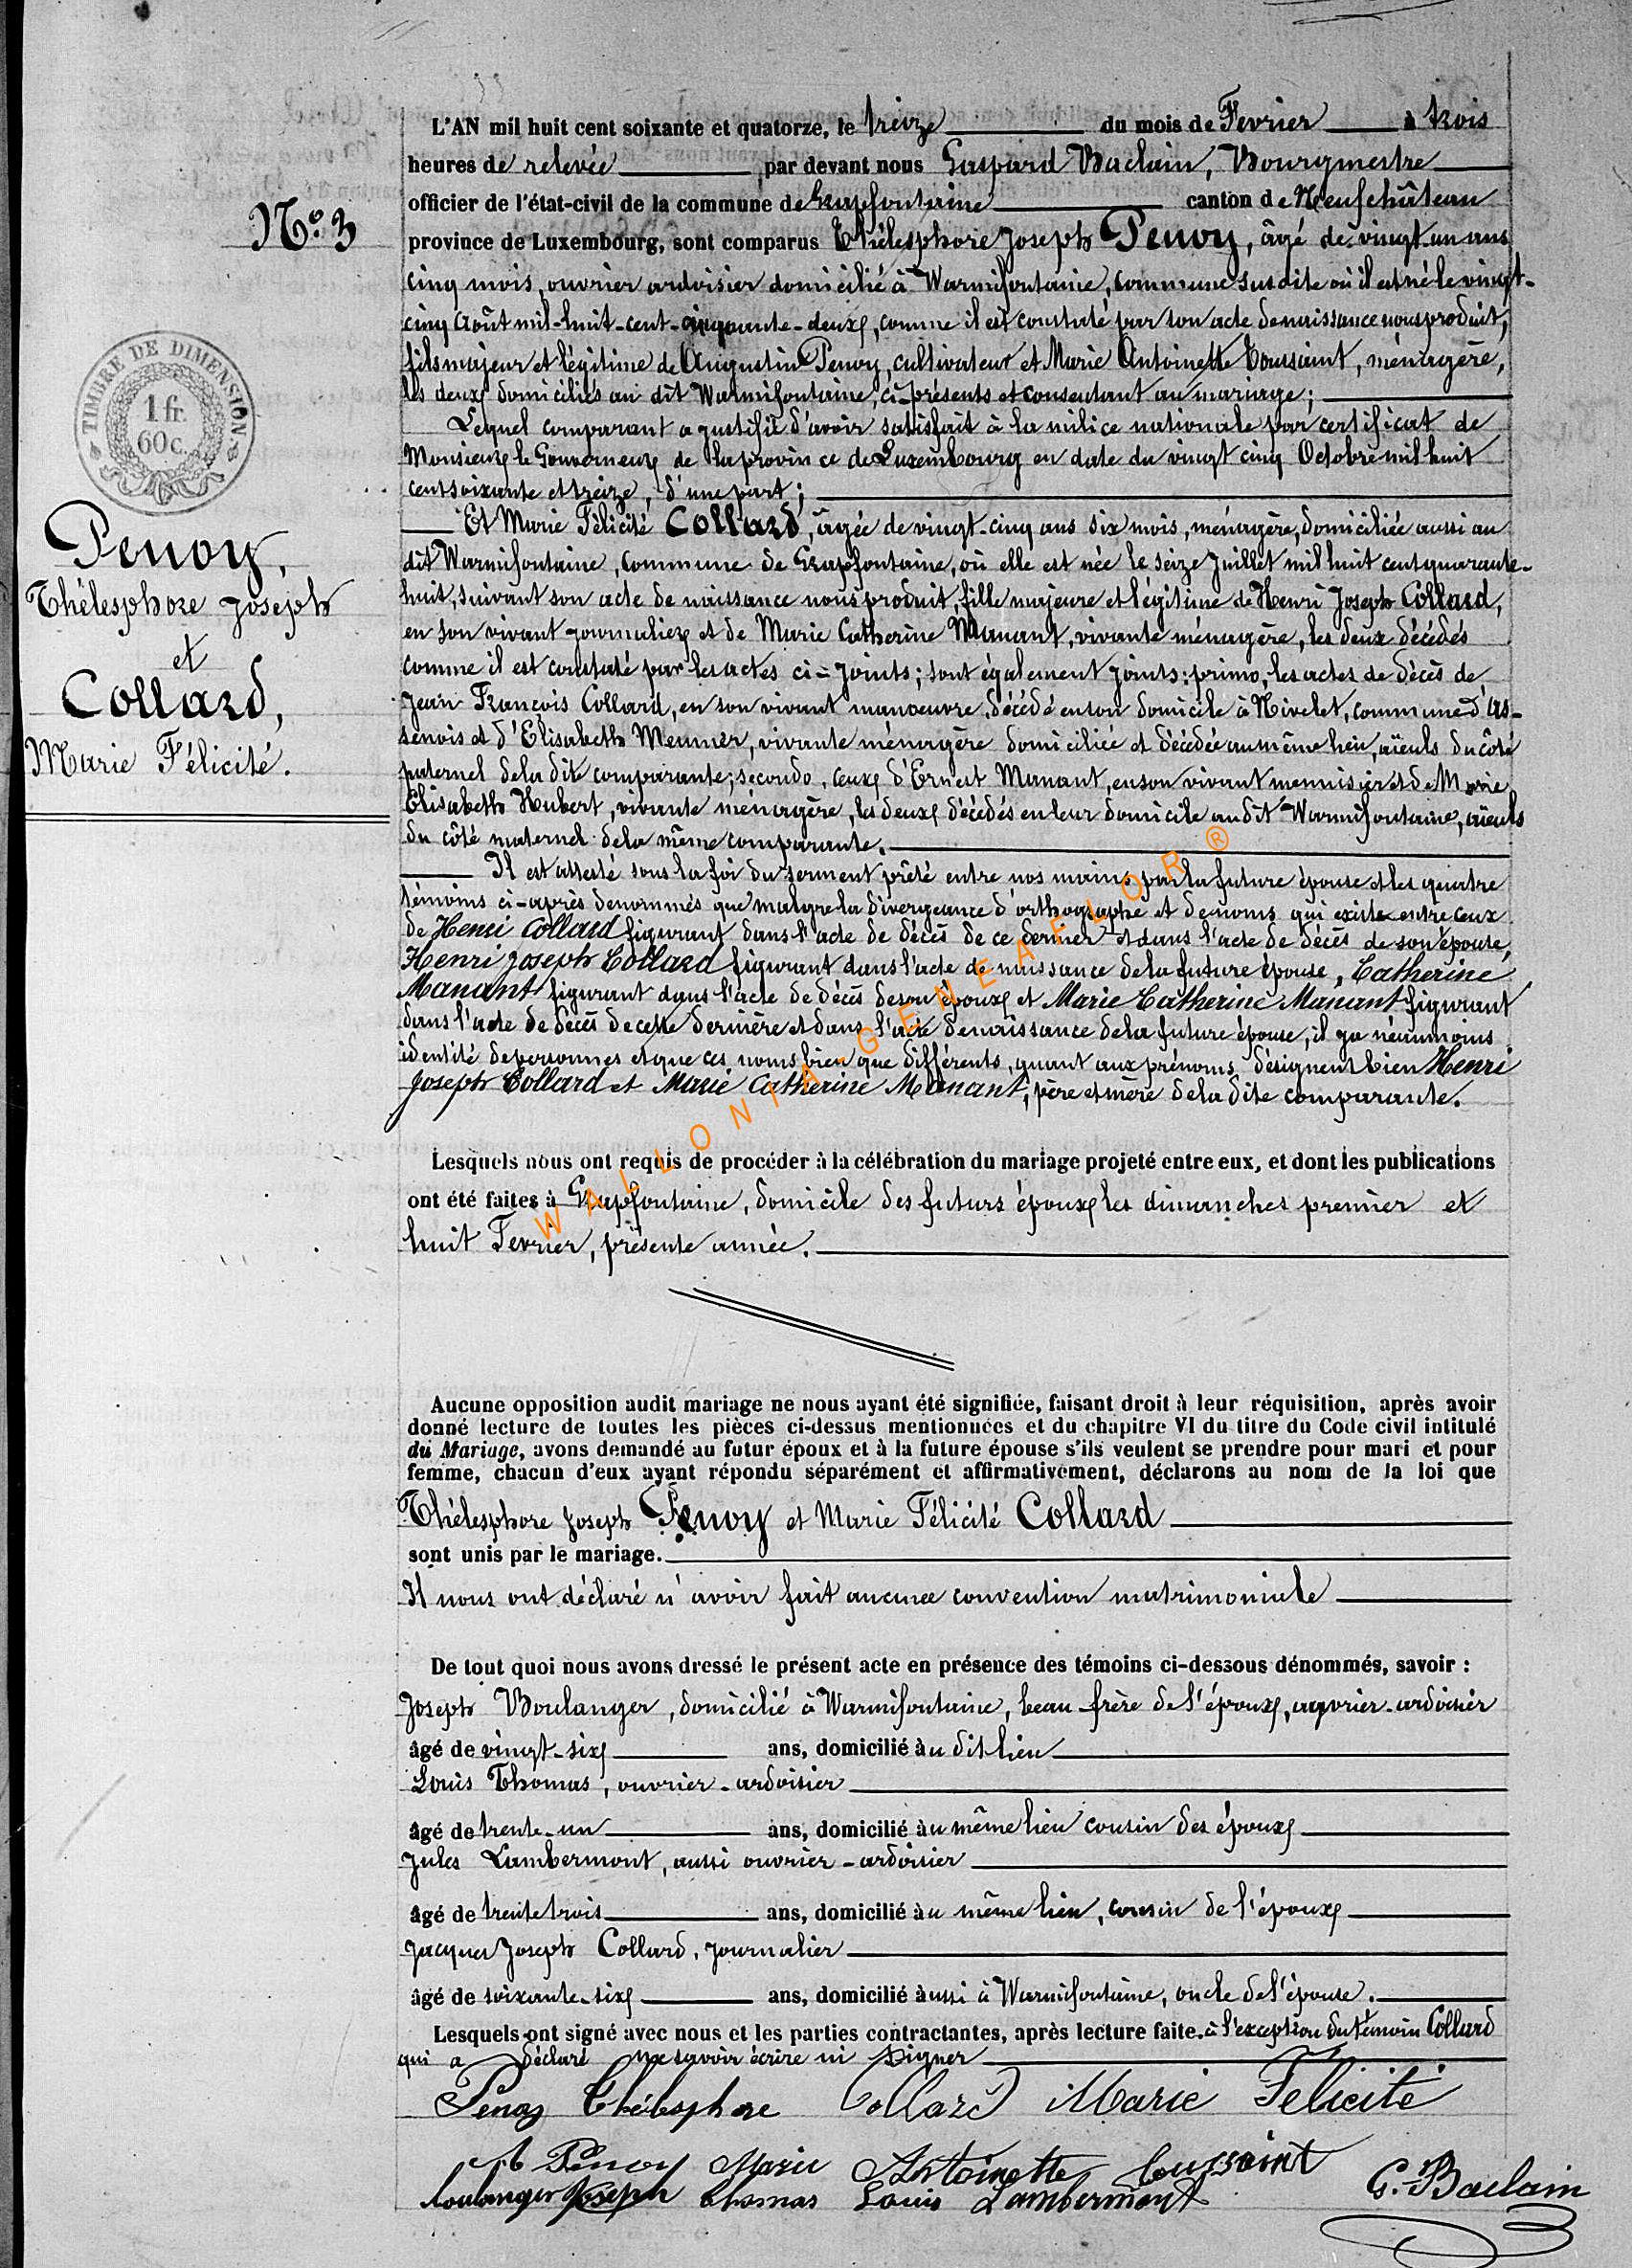 L'AN mil huit cent soixante et quatorze, le treize du mois de Fevrier à trois
heures de relevée par devant nous Gaspard Baclain, Bourgmestre
officier de l'état-civil de la commune de Grapfontaine canton de Neufchâteau
N° 3
province de Luxembourg, sont comparus Thélesphore Joseph Penoy, âgé de vingt-un ans
cinq mois, ouvrier ardoisier domicilié à Warmifontaine, commune susdite où il est né le vingt-
cinq Août mil-huit-cent-cinquante-deux, comme il est constaté par son acte de naissance nous produit,
fils majeur et légitime de Augustin Penoy, cultivateur et Marie Antoinette Toussaint, ménagère,
les deux domiciliés au dit Warmifontaine, ci-présents et consentant au mariage;
Lequel comparant a justifié d'avoir satisfait à la milice nationale par certificat de
Monsieur le Gouverneur de la province de Luxembourg en date du vingt cinq Octobre mil huit
cent soixante et treize, d'une part;
TIMBRE DE DIMENSION
1 fr.
60 c.
Et Marie Félicité Collard, âgée de vingt-cinq ans six mois, ménagère, domiciliée aussi au
dit Warmifontaine, commune de Grapfontaine, où elle est née le seize Juillet mil huit cent quarante-
huit, suivant son acte de naissance nous produit, fille majeure et légitime de Henri Joseph Collard,
en son vivant journalier et de Marie Catherine Manant, vivante ménagère, les deux décédés
comme il est constaté par les actes ci-joints; sont également joints: primo, les actes de décès de
Jean François Collard, en son vivant manoeuvre, décédé en son domicile à Nivelet, commune d'As-
senois et d'Elisabeth Meunier, vivante ménagère domiciliée et décédée au même lieu, aïeuls du côté
paternel de la dite comparante; secondo, ceux d'Ernest Manant, en son vivant menuisier et de Marie
Elisabeth Hubert, vivante ménagère, les deux décédés en leur domicile au dit Warmifontaine, aïeuls
du côté maternel de la même comparante.
Penoy,
Thélesphore Joseph
et
Collard,
Marie Félicité.
Il est attesté sous la foi du serment prêté entre nos mains par la future épouse et les quatre
témoins ci-après denommés que malgré la divergeance d'orthographe et de noms qui existe entre ceux
de Henri Collard figurant dans l'acte de décès de ce dernier et dans l'acte de décès de son épouse,
Henri Joseph Collard figurant dans l'acte de naissance de la future épouse, Catherine
Manant figurant dans l'acte de décès de son époux et Marie Catherine Manant figurant
dans l'acte de décès de cette dernière et dans l'acte de naissance de la future épouse, il y a néanmoins
identité de personnes et que ces noms bien que différents, quant aux prénoms, désignent bien Henri
Joseph Collard et Marie Catherine Manant, père et mère de la dite comparante.
WALLONIA-GENEAFLOR ®
Lesquels nous ont requis de procéder à la célébration du mariage projeté entre eux, et dont les publications
ont été faites à Grapfontaine, domicile des futurs époux les dimanches premier et
huit Fevrier, présente année.
Aucune opposition audit mariage ne nous ayant été signifiée, faisant droit à leur réquisition, après avoir
donné lecture de toutes les pièces ci-dessus mentionnées et du chapitre VI du titre du Code civil intitulé
du Mariage, avons demandé au futur époux et à la future épouse s'ils veulent se prendre pour mari et pour
femme, chacun d'eux ayant répondu séparément et affirmativement, déclarons au nom de la loi que
Thélesphore Joseph Penoy et Marie Félicité Collard
sont unis par le mariage.
Il nous ont déclaré n'avoir fait aucune convention matrimoniale
De tout quoi nous avons dressé le présent acte en présence des témoins ci-dessous dénommés, savoir :
Joseph Boulanger, domicilié à Warmifontaine, beau-frère de l'époux, ouvrier-ardoisier
âgé de vingt-six ans, domicilié àu dit lieu
Louis Thomas, ouvrier-ardoisier
âgé de trente-un ans, domicilié àu même lieu cousin des époux
Jules Lambermont, aussi ouvrier-ardoisier
âgé de trente trois ans, domicilié àu même lieu, cousin de l'époux
Jacques Joseph Collard, journalier
âgé de soixante-six ans, domicilié àussi à Warmifontaine, oncle de l'épouse.
Lesquels ont signé avec nous et les parties contractantes, après lecture faite. à l'exception du témoin Collard
qui a déclaré ne savoir écrire ni signer
Penoy Thélesphore Collard Marie Felicité
A Penoy Marie Antoinette toussaint
boulanger Joseph thomas Louis Lambermont G. Baclain